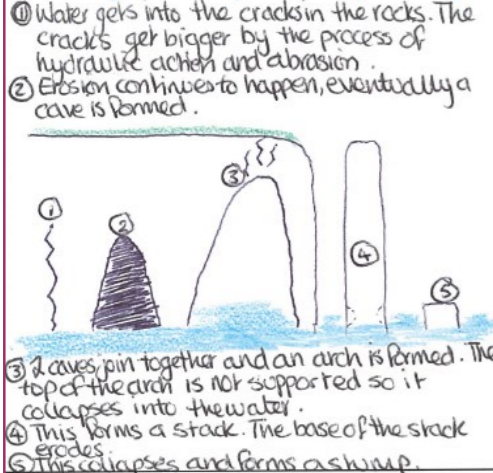 ① Water gets into the cracks in the rocks. The
cracks get bigger by the process of
hydraulic action and abrasion.
② Erosion continues to happen, eventually a
cave is formed.
③
①
②
④
⑤
③ 2 caves join together and an arch is formed. The
top of the arch is not supported so it
collapses into the water.
④ This forms a stack. The base of the stack
erodes.
⑤ This collapses and forms a stump